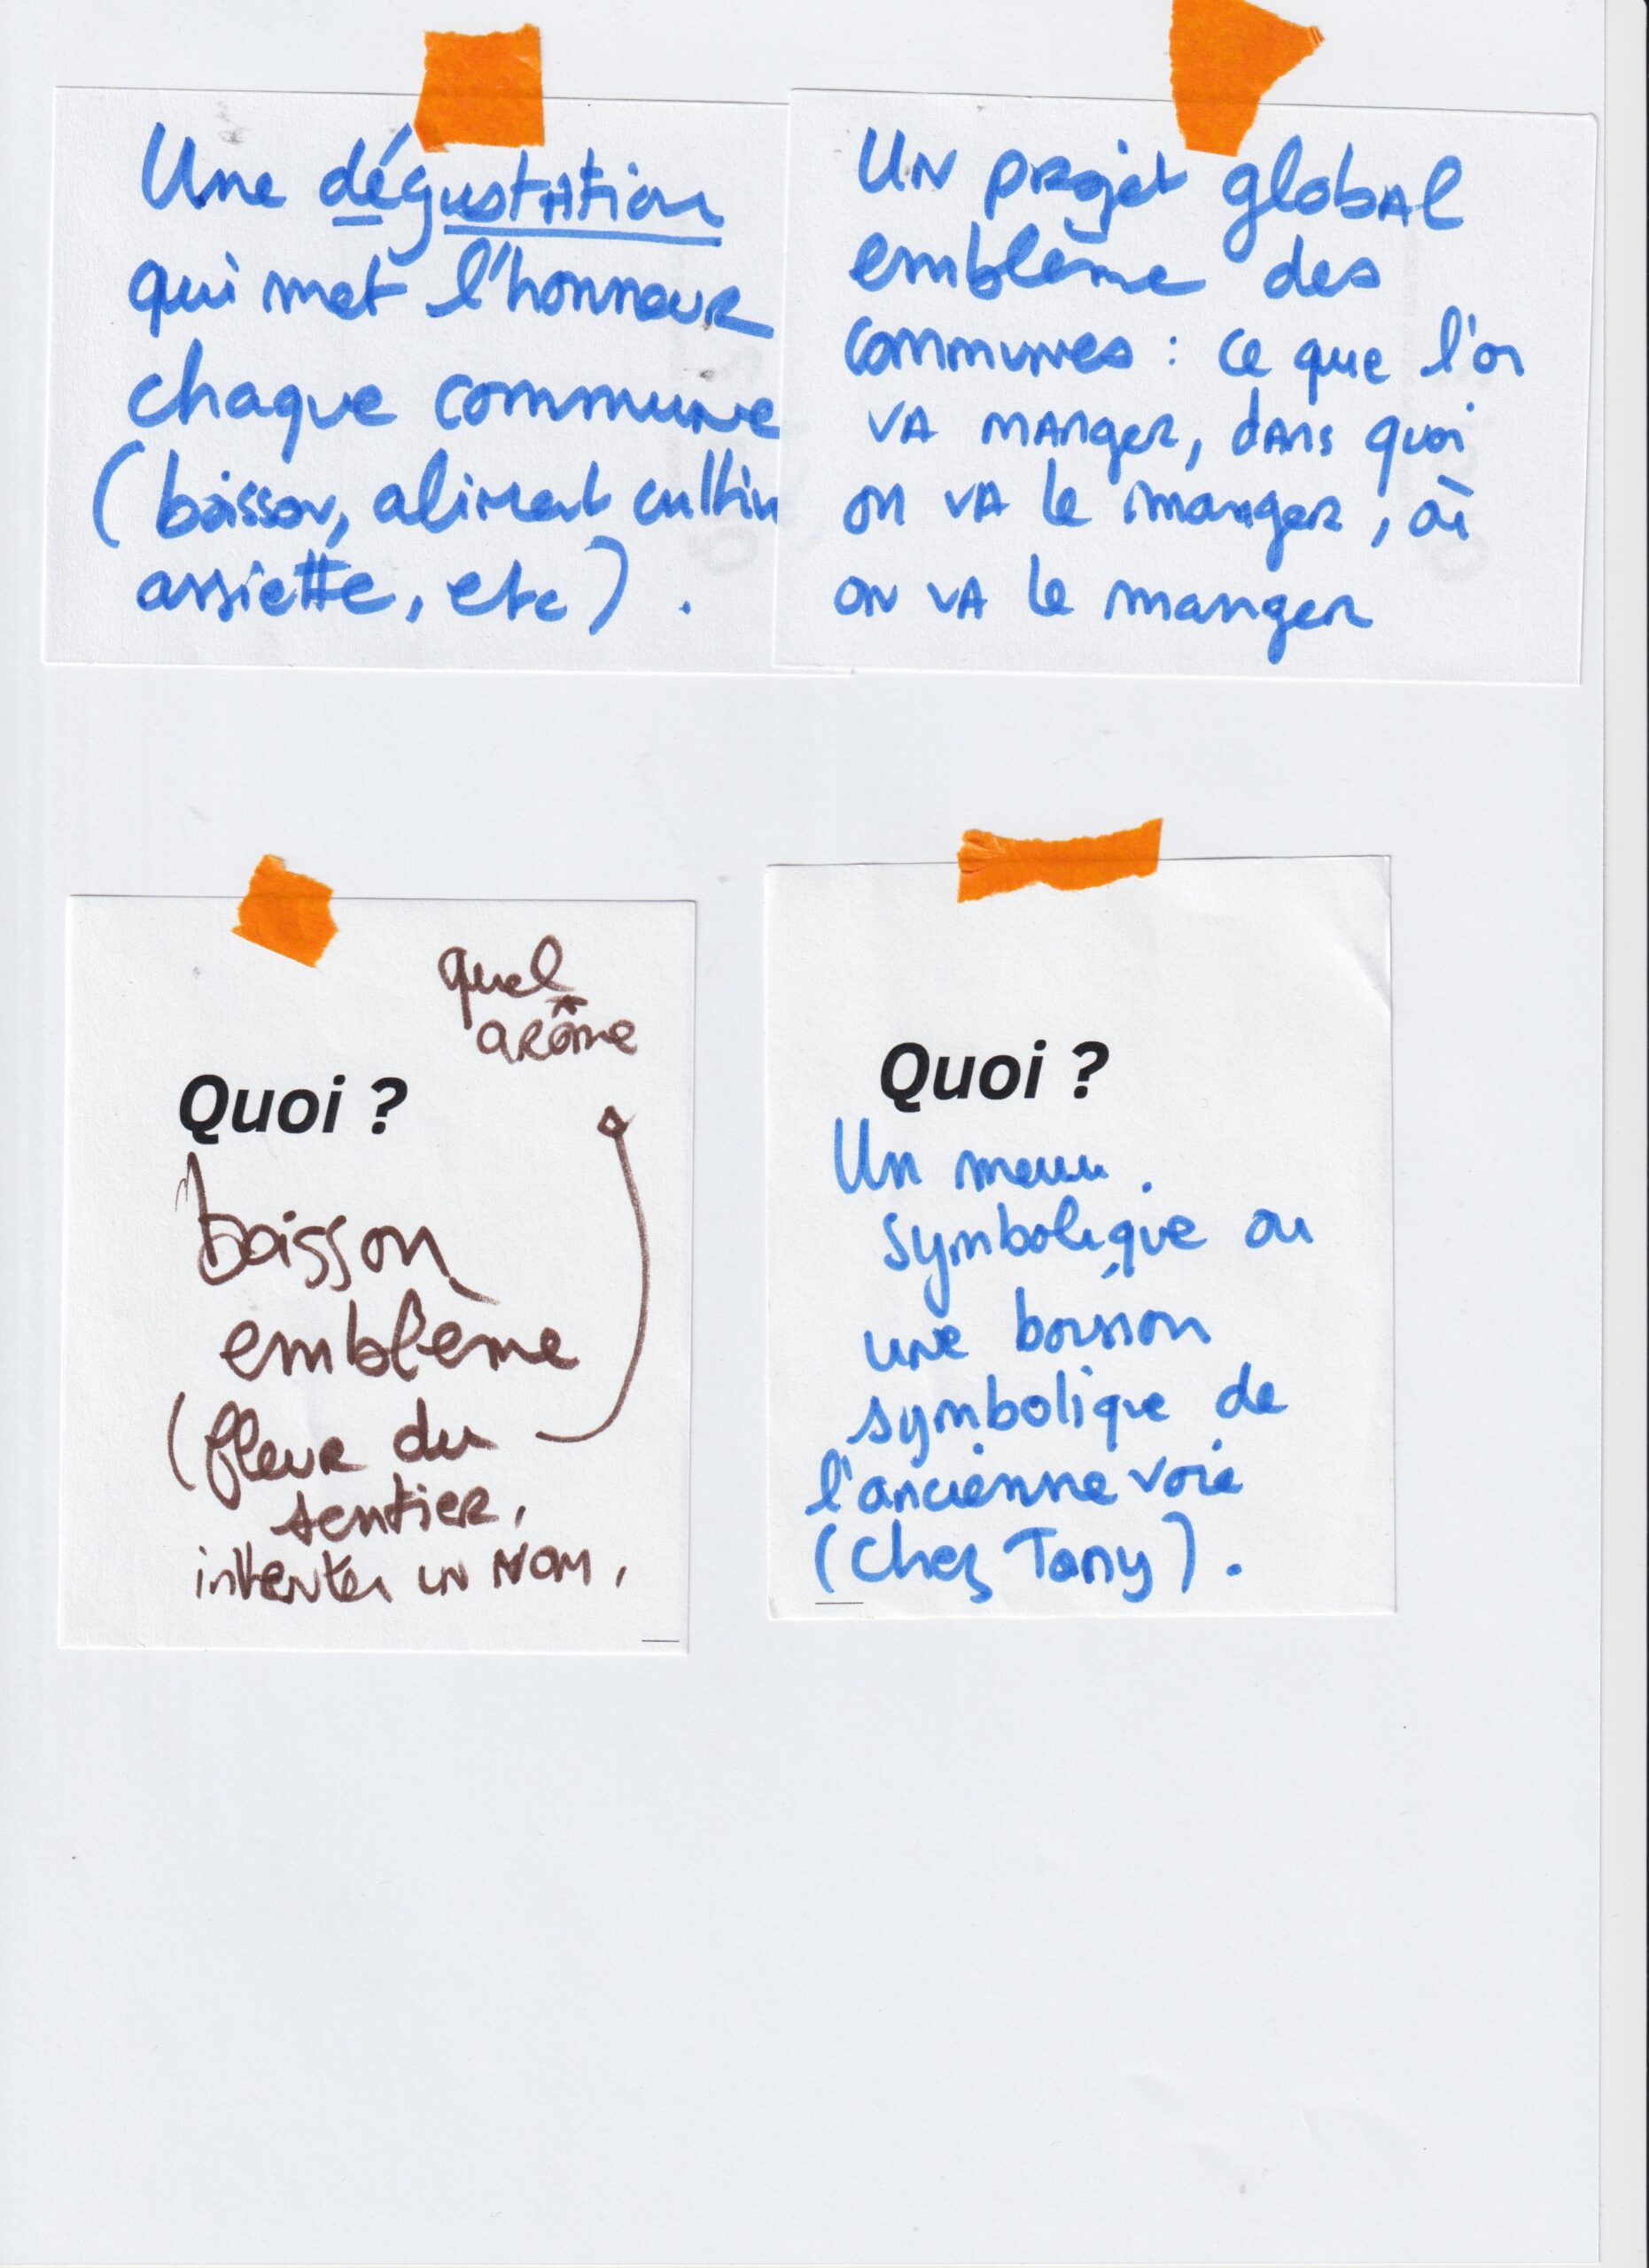 Une dégustation
qui met l'honneur
chaque commune
(boisson, aliment cultiv
assiette, etc).
Un projet global
emblème des
communes : ce que l'on
va manger, dans quoi
on va le manger, où
on va le manger
quel
arôme
Quoi ?
boisson
emblème
(fleur du
sentier,
inventer un nom,
Quoi ?
Un menu
symbolique ou
une boisson
symbolique de
l'ancienne voie
(Chez Tony).